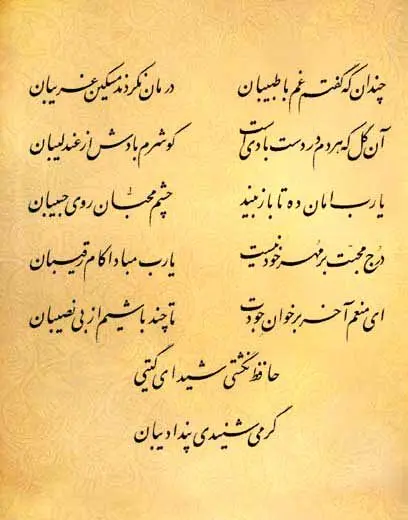 چندان که گفتم غم با طبیبان درمان نکردند مسکین غریبان
آن گل که هر دم در دست بادی است گو شرم بادش از عندلیبان
یا رب امان ده تا باز بیند چشم محبان روی حبیبان
درج محبت بر مهر خود نیست یا رب مبادا کام رقیبان
ای منعم آخر بر خوان جودت تا چند باشیم از بی نصیبان
حافظ نگشتی شیدای گیتی
گر می شنیدی پند ادیبان